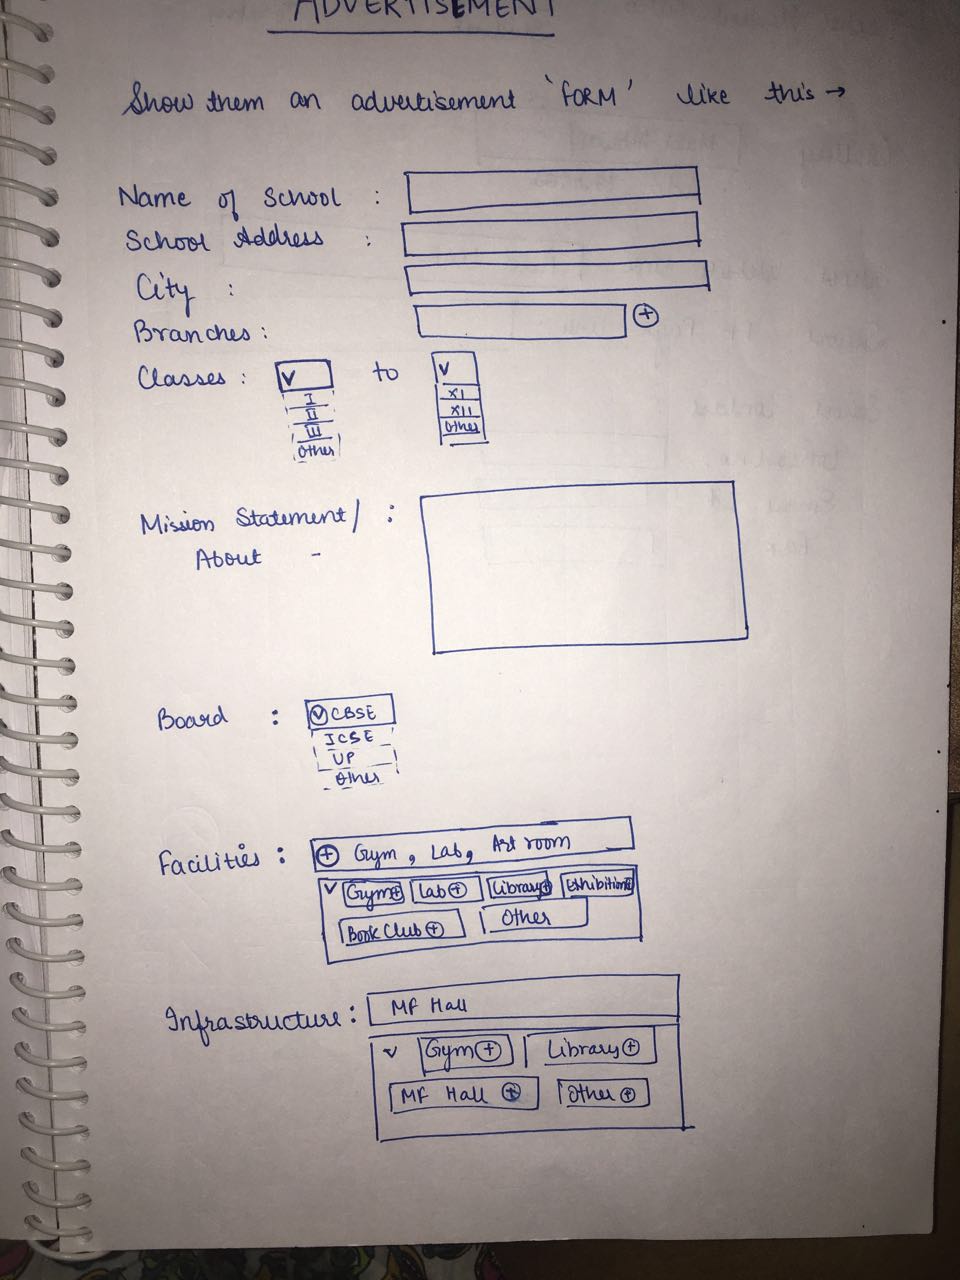 ADVERTISEMENT
Show them an advertisement 'FORM' like this →
Name of School :
School Address :
City :
Branches : +
Classes : ✓ to ✓
I XI
II XII
III Other
Other
Mission Statement / :
About -
Board : ✓ CBSE
ICSE
UP
Other
Facilities : + Gym, Lab, Art room
✓ Gym + Lab + Library + Exhibition +
Book Club + Other
Infrastructure : MF Hall
✓ Gym + Library +
MF Hall + Other +